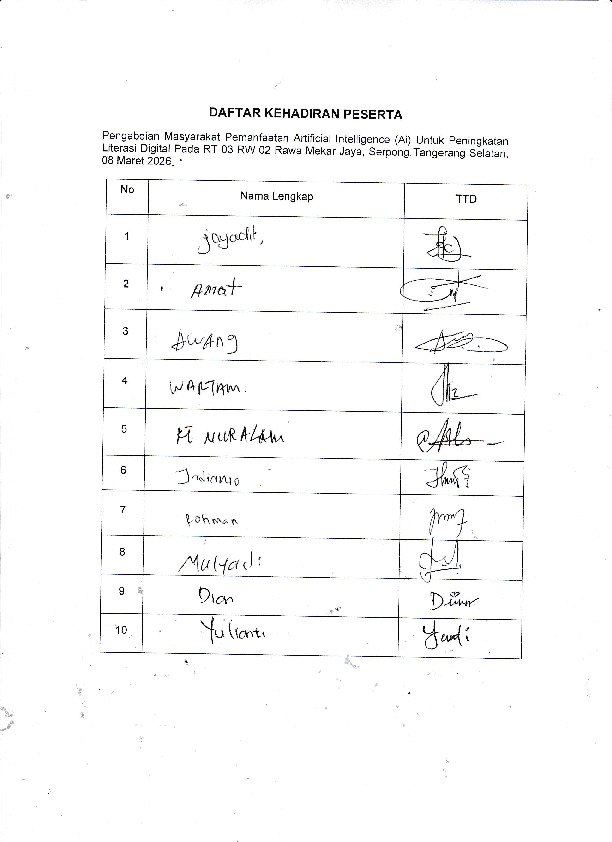 DAFTAR KEHADIRAN PESERTA
Pengabdian Masyarakat Pemanfaatan Artificial Intelligence (Ai) Untuk Peningkatan
Literasi Digital Pada RT 03 RW 02 Rawa Mekar Jaya, Serpong, Tangerang Selatan,
08 Maret 2026.
No Nama Lengkap TTD
1 jayadit,
2 Amat
3 AWANG
4 WARTAM.
5 NURALAM
6
7 Rohman
8 Mulyadi
9 Dian
10 Yulianti